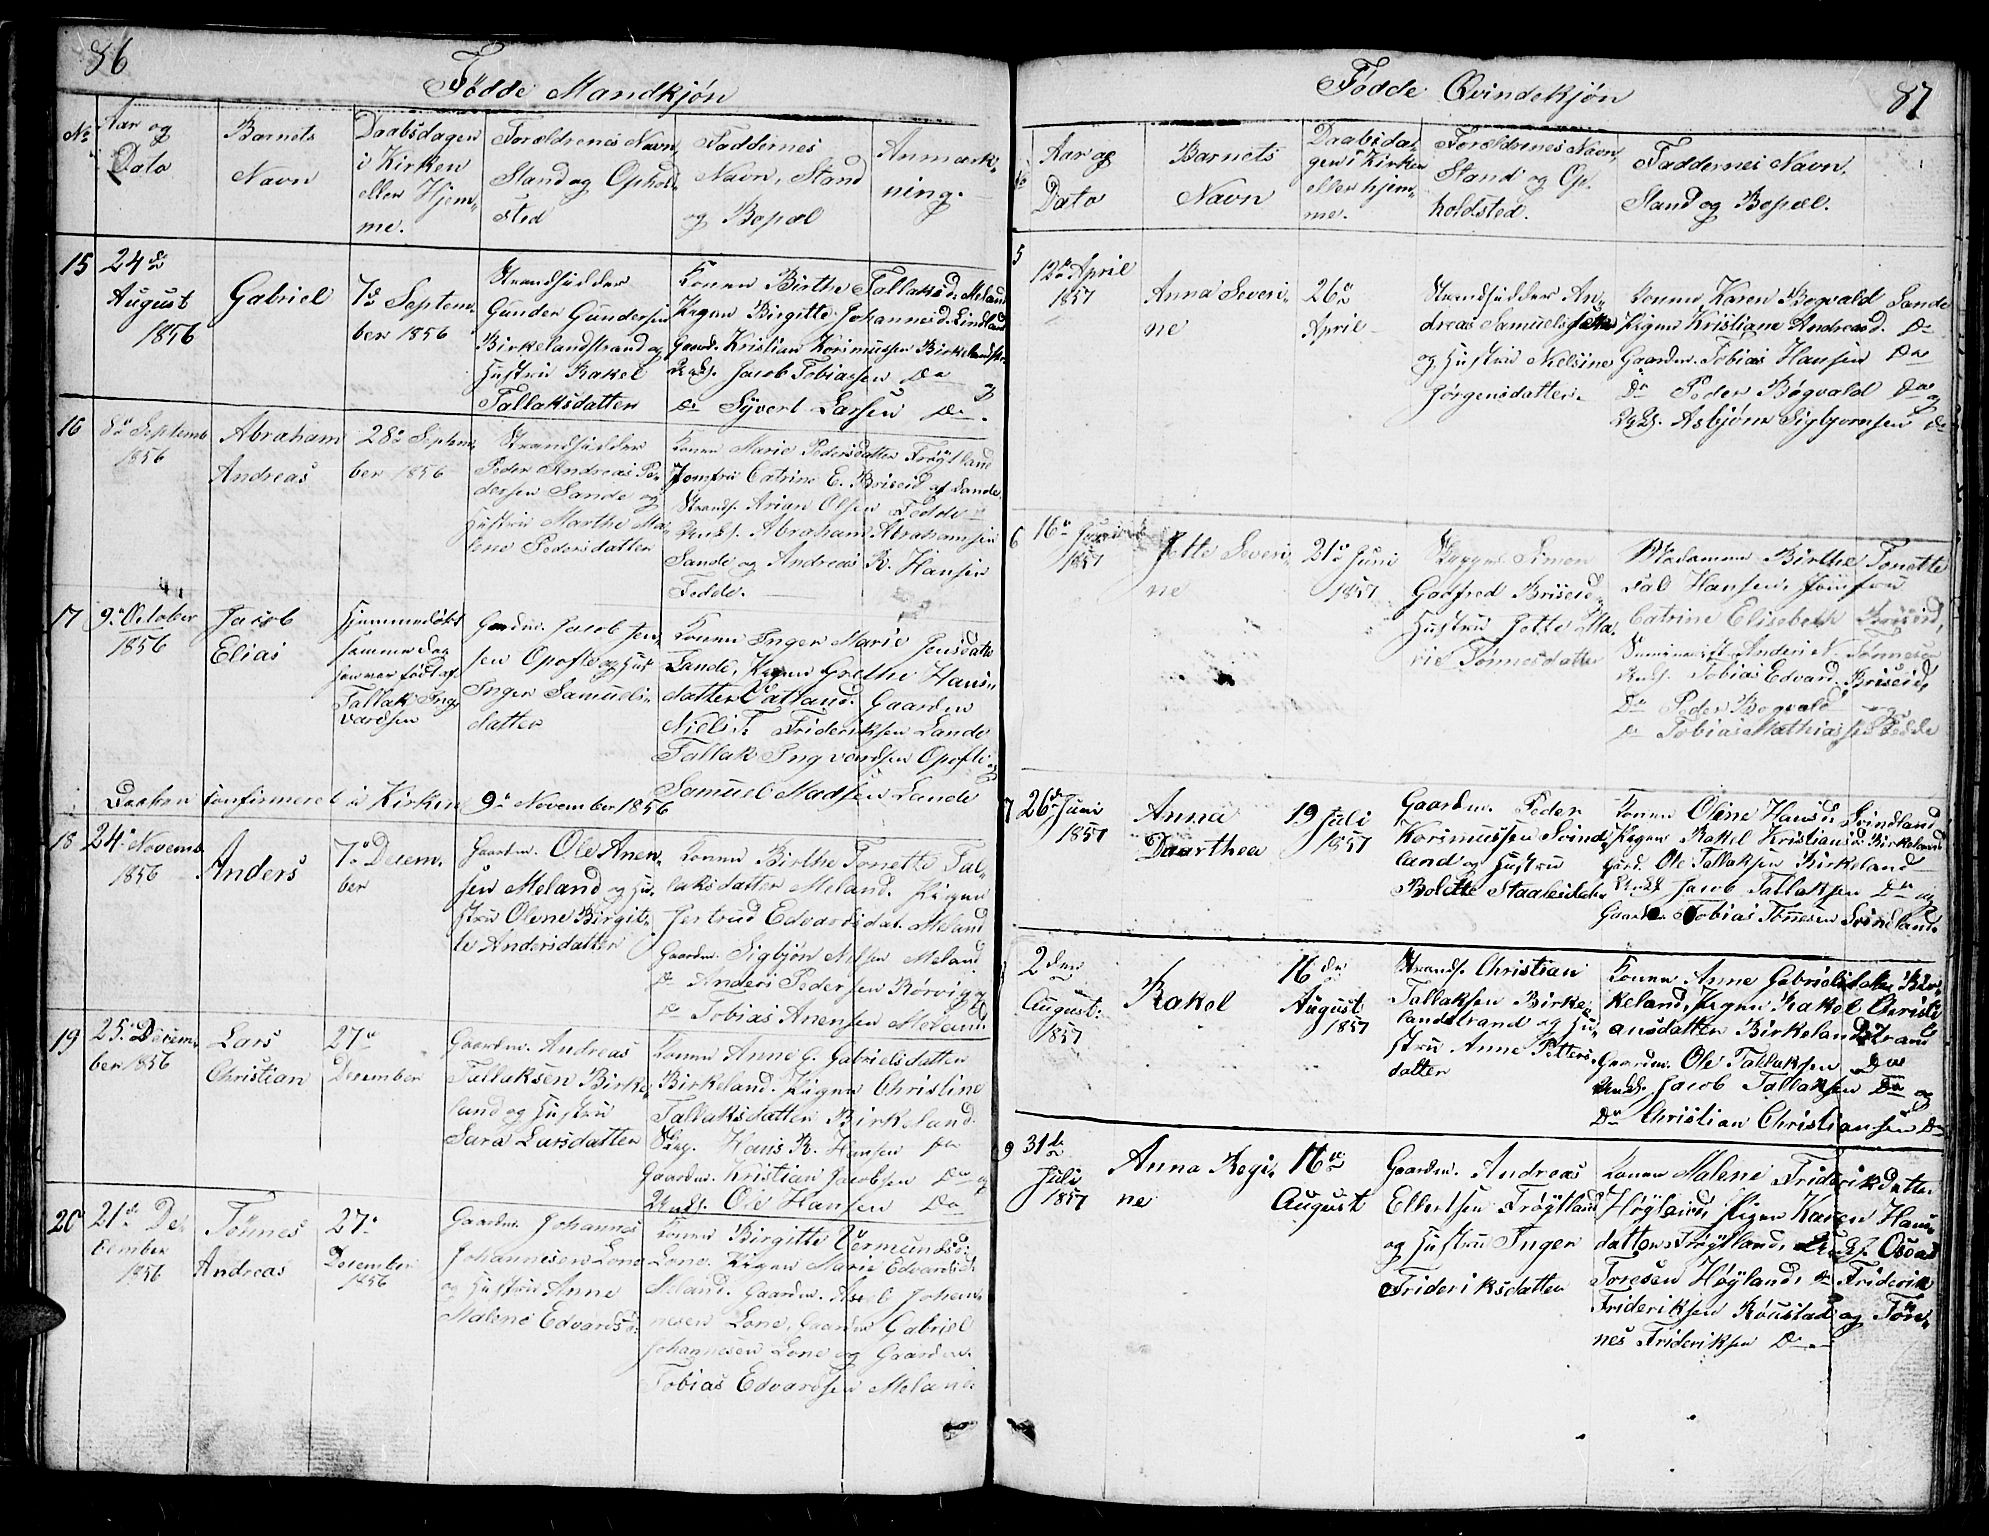 86
Fødde Mandkjøn
No
Aar og
Dato
Barnets
Navn
Daabsdagen
i Kirken
eller Hjem-
me.
Forældrenes Navn,
Stand og Ophold-
sted
Faddernes
Navn, Stand
og Bopæl
Anmærk-
ning.
15
24de
August
1856
Gabriel
7de Septem-
ber 1856
Strandsidder
Gunder Gundersen
Birkelandstrand og
Hustru Rakel
Tallaksdatter
Konen Birthe Tallaksd. Meland
Pigen Birgitte Johannesd. Lindland
Gaardm. Kristian Korsmussen Birkeland
Ungk. Jacob Tobiassen Do
Do Syvert Larsen Do
16
8de Septemb
1856
Abraham
Andreas
28de Septem-
ber 1856
Strandsidder
Peder Andreas Pe-
dersen Sande og
Hustru Marthe Ma-
lene Pedersdatter
Konen Marie Pedersdatter Frøytland
Jomfru Catrine E. Briseid af Sande
Strands. Arian Olsen Fedde
Ungk. Abraham Abrahamsen
Sande og Andreas R. Hansen
Fedde.
17
9de October
1856
Jacob
Elias
Hjemmedøbt
samme Dag
som var født af
Tallak Ing-
vardsen
Gaardm. Jacob Jen-
sen Opofte og Hust
Inger Samuels-
datter
Konen Inger Marie Jensdatter
Sande, Pigen Grethe Hans-
datter Vatland. Gaardm
Niels T. Frideriksen Lande
Tallak Ingvardsen Opofte og
Samuel Madsen Lande
Daaben confirmeret i Kirken 9de November 1856
18
24de Novemb
1856
Anders
7de Decem-
ber
Gaardm. Ole Anen-
sen Meland og Hu-
stru Olene Birgit-
te Andersdatter
Konen Birthe Tonette Tal-
laksdatter Meland. Pigen
Jertrud Edvardsdat. Meland
Gaardm. Sigbjøn Nilsen Meland
Do Anders Pedersen Rørvig og
Do Tobias Anensen Meland
19
25de Decem-
ber 1856
Lars
Christian
27de
December
Gaardm. Andreas
Tallaksen Birke-
land og Hustru
Sara Larsdatter
Konen Anne G. Gabrielsdatter
Birkeland. Pigen Christine
Tallaksdatter Birkeland.
Hans R. Hansen Do
Gaardm. Kristian Jacobsen Do og
Ungk. Ole Hansen Do
20
21de De-
cember
1856
Tønnes
Andreas
27de
December
1856
Gaardm. Johannes
Johannesen Lone
og Hustru Anne
Malene Edvardsd.
Konen Birgitte Vermundsd.
Lone. Pigen Marie Edvardsd.
Meland. Gaardm. Axel Johan-
nesen Lone, Gaardm Gabriel
Johannesen Lone og Gaardm.
Tobias Edvardsen Meland
87
Fødde Qvindekjøn
No
Aar og
Dato
Barnets
Navn
Daabsda-
gen i Kirken
eller hjem-
me.
Forældrenes Navn,
Stand og Op-
holdsted.
Faddernes Navn,
Stand og Bopæl.
5
12de April
1857
Anna Severi-
ne
26de
April
Strandsidder An-
dreas Samuelsen
og Hustru Nelsine
Jørgensdatter.
Konen Karen Bøgvald Sande
Pigen Kristiane Andreasd. Do
Gaardm. Tobias Hansen Do
Do Peder Bøgvald Do og
Ungk. Asbjørn Sigbjørnsen Do
6
16de Juni
1857
Jette Severi-
ne
21de Juni
1857
Simon
Godfred Briseid
Hustru Jette Ma-
rie Tønnesdatter
Madamme Birthe Tonette
sal Hansen, Jomfru
Catrine Elisebeth Briseid,
Anders N. Tønnesen
Ungk. Tobias Edvard Briseid,
Do Peder Bøgvald og
Do Tobias Mathiassen Fedde
7
26de Juni
1857
Anna
Daarthea
19 Juli
1857
Gaardm. Peder
Korsmussen Svind-
land og Hustru
Bolette
Konen Olene Hansd. Svindland
Pigen Rakel Kristiansd. Birkeland
Gard. Ole Tallaksen Birkeland
Ungk Jacob Tallaksen Do og
Gaardm. Tobias Tønnesen Svindland.
2den
August
1857
Rakel
16de
August
1857
Strands. Christian
Tallaksen Birke-
landstrand og Hu-
stru Anne Petters-
datter
Konen Anne Gabrielsdatter Bir-
keland, Pigen Rakel Christi-
ansdatter Birkelandstrand
Gaardm. Ole Tallaksen Do
Ungk. Jacob Tallaksen Do og
Do Christian Christiansen Do
9
31de
Juli
1857
Anna Regi-
ne
16de
August
Gaardm. Andreas
Elbertsen Frøytland
og Hustru Inger
Frideriksdatter
Konen Malene Frideriksdatter
Høyland, Pigen Karen Hans-
datter Frøytland, Osvas
Toresen Høyland, Do Friderik
Frideriksen Røustad og Tøn-
nes Frideriksen Do